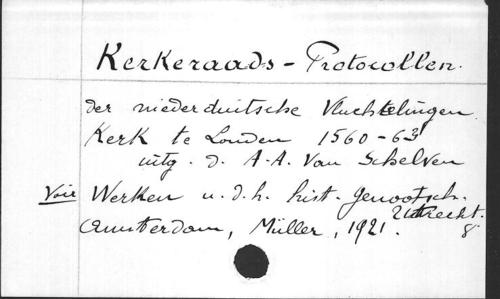 Kerkeraads - Protocollen.
der niederduitsche Vluchtelingen
Kerk te Londen 1560-63
uitg. d. A.A. Van Schelven
Voir Werken u.d.h. hist. Genootsch.
Utrecht.
Amsterdam, Müller, 1921. 8°